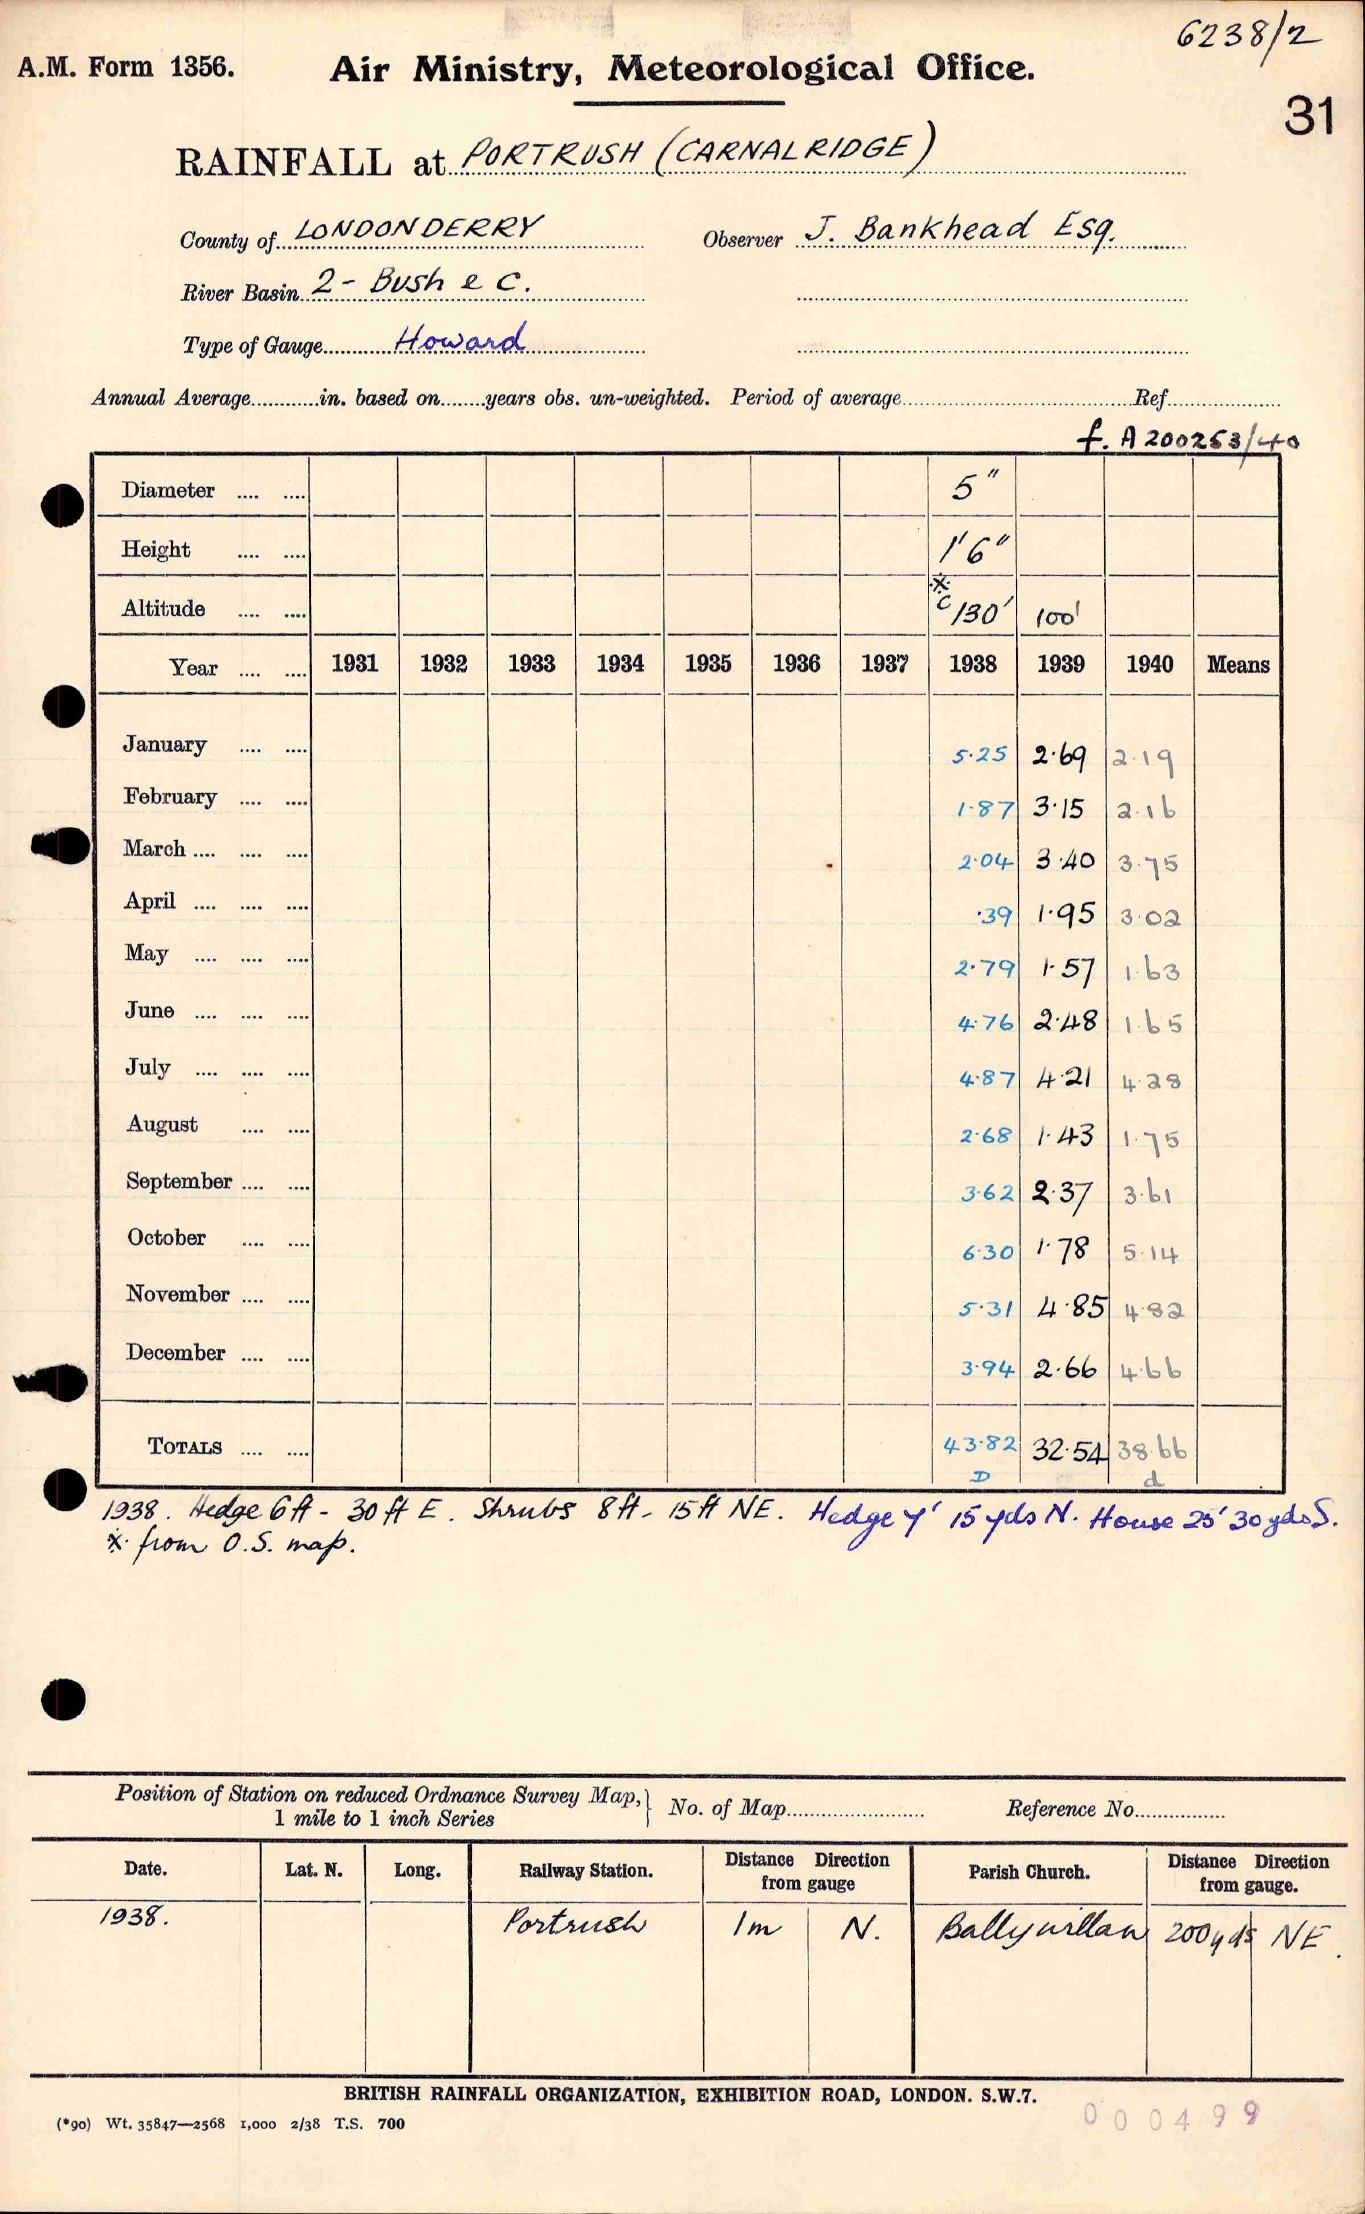 6238/2
A.M. Form 1356. Air Ministry, Meteorological Office.
31
RAINFALL at PORTRUSH (CARNALRIDGE)
County of LONDONDERRY Observer J. Bankhead Esq.
River Basin 2 - Bush & C.
Type of Gauge Howard
Annual Average............in. based on.......years obs. un-weighted. Period of average.......... Ref..........
f. A 200253/40
Diameter .... .... 5"
Height .... .... 1'6"
※
Altitude .... .... c 130' 100'
Year .... .... 1931 1932 1933 1934 1935 1936 1937 1938 1939 1940 Means
January .... .... 5.25 2.69 2.19
February .... .... 1.87 3.15 2.16
March .... .... .... 2.04 3.40 3.75
April .... .... .... .39 1.95 3.02
May .... .... .... 2.79 1.57 1.63
June .... .... .... 4.76 2.48 1.65
July .... .... .... 4.87 4.21 4.28
August .... .... 2.68 1.43 1.75
September .... .... 3.62 2.37 3.61
October .... .... 6.30 1.78 5.14
November .... .... 5.31 4.85 4.82
December .... .... 3.94 2.66 4.66
TOTALS .... .... 43.82 32.54 38.66
D d
1938. Hedge 6ft - 30 ft E. Shrubs 8ft - 15 ft NE. Hedge 7' 15 yds N. House 25' 30 yds S.
※ from O.S. map.
Position of Station on reduced Ordnance Survey Map, 1 mile to 1 inch Series } No. of Map.......... Reference No..........
Date. Lat. N. Long. Railway Station. Distance Direction from gauge Parish Church. Distance Direction from gauge.
1938. Portrush 1m N. Ballywillan 200yds NE.
BRITISH RAINFALL ORGANIZATION, EXHIBITION ROAD, LONDON. S.W.7.
(*90) Wt. 35847—2568 1,000 2/38 T.S. 700
000499